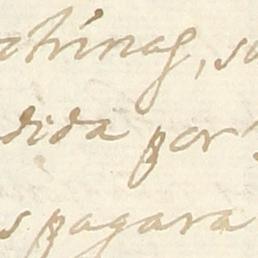 chinas, s
dida por
s pagara